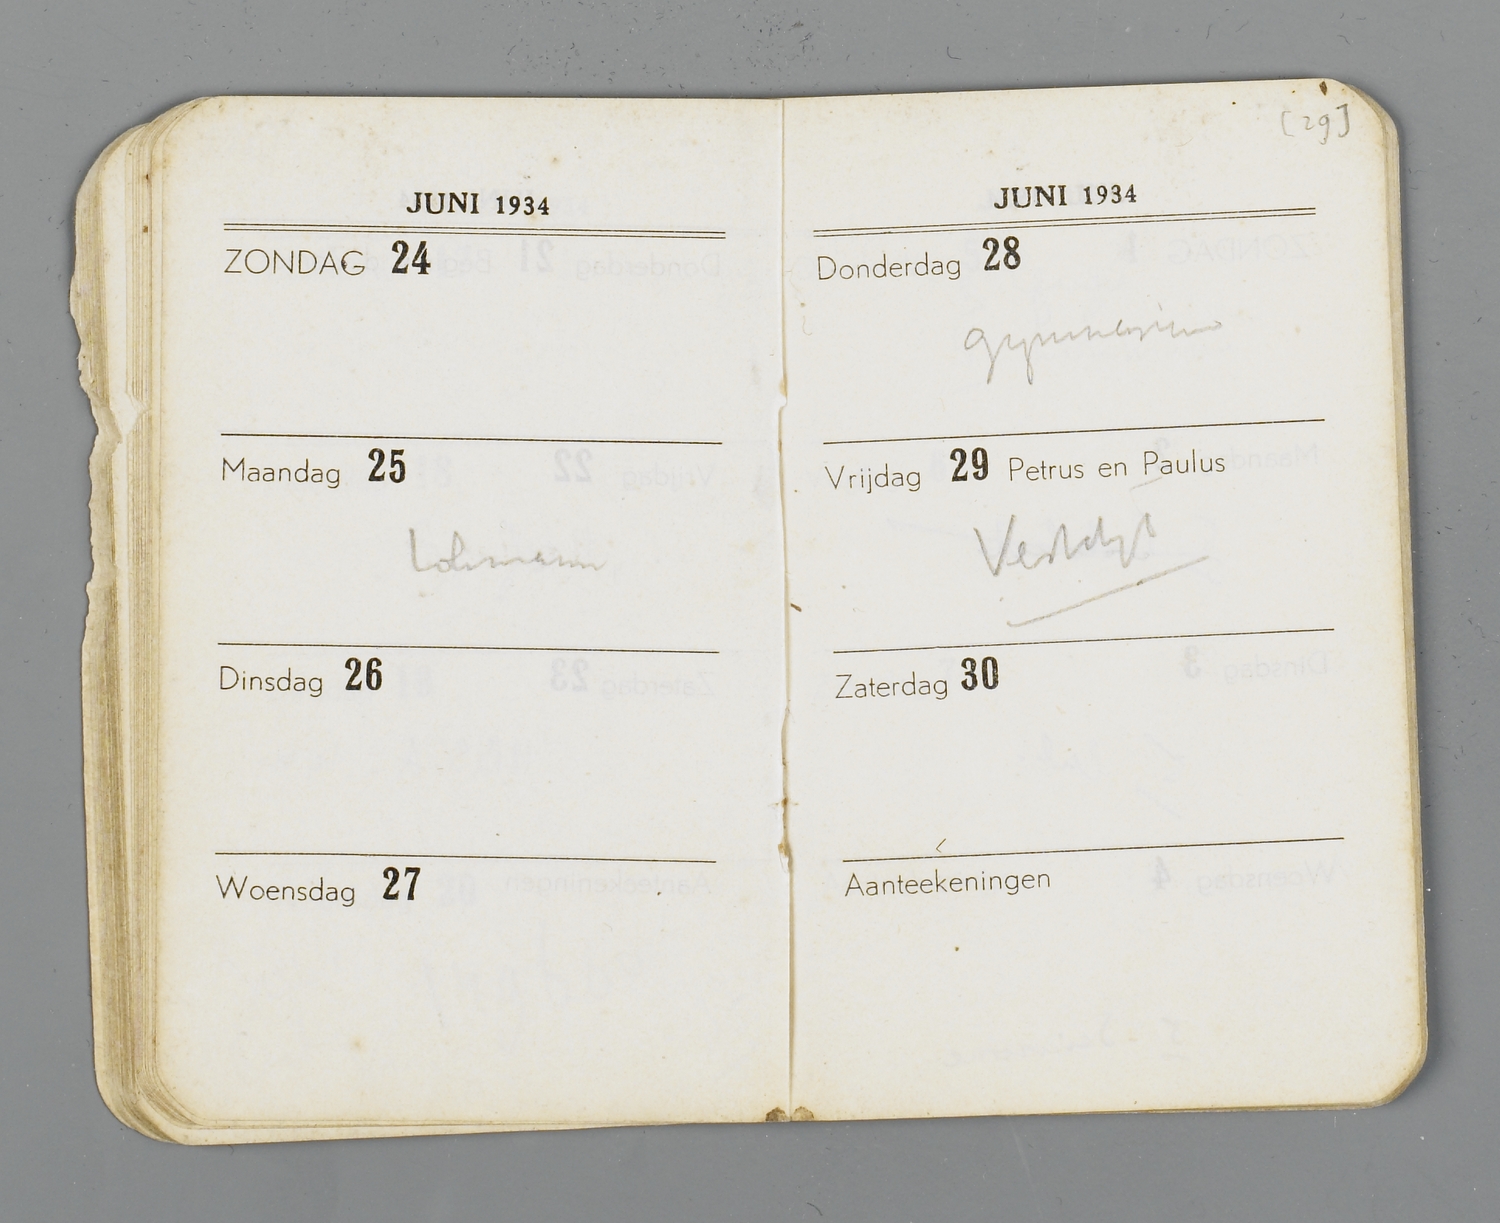 JUNI 1934
ZONDAG 24
Maandag 25
Lohmann
Dinsdag 26
Woensdag 27
[29]
JUNI 1934
Donderdag 28
gymnasium
Vrijdag 29 Petrus en Paulus
Zaterdag 30
Aanteekeningen